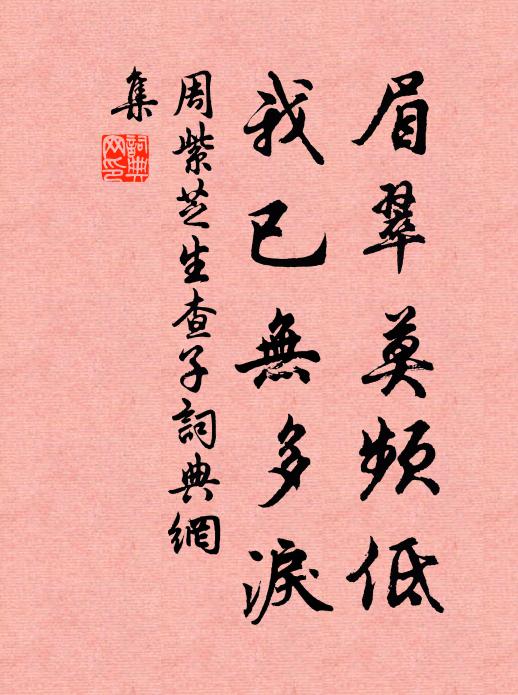 眉翠莫頻低
我已無多淚
周紫芝生查子詞典網
集
詞典
网印